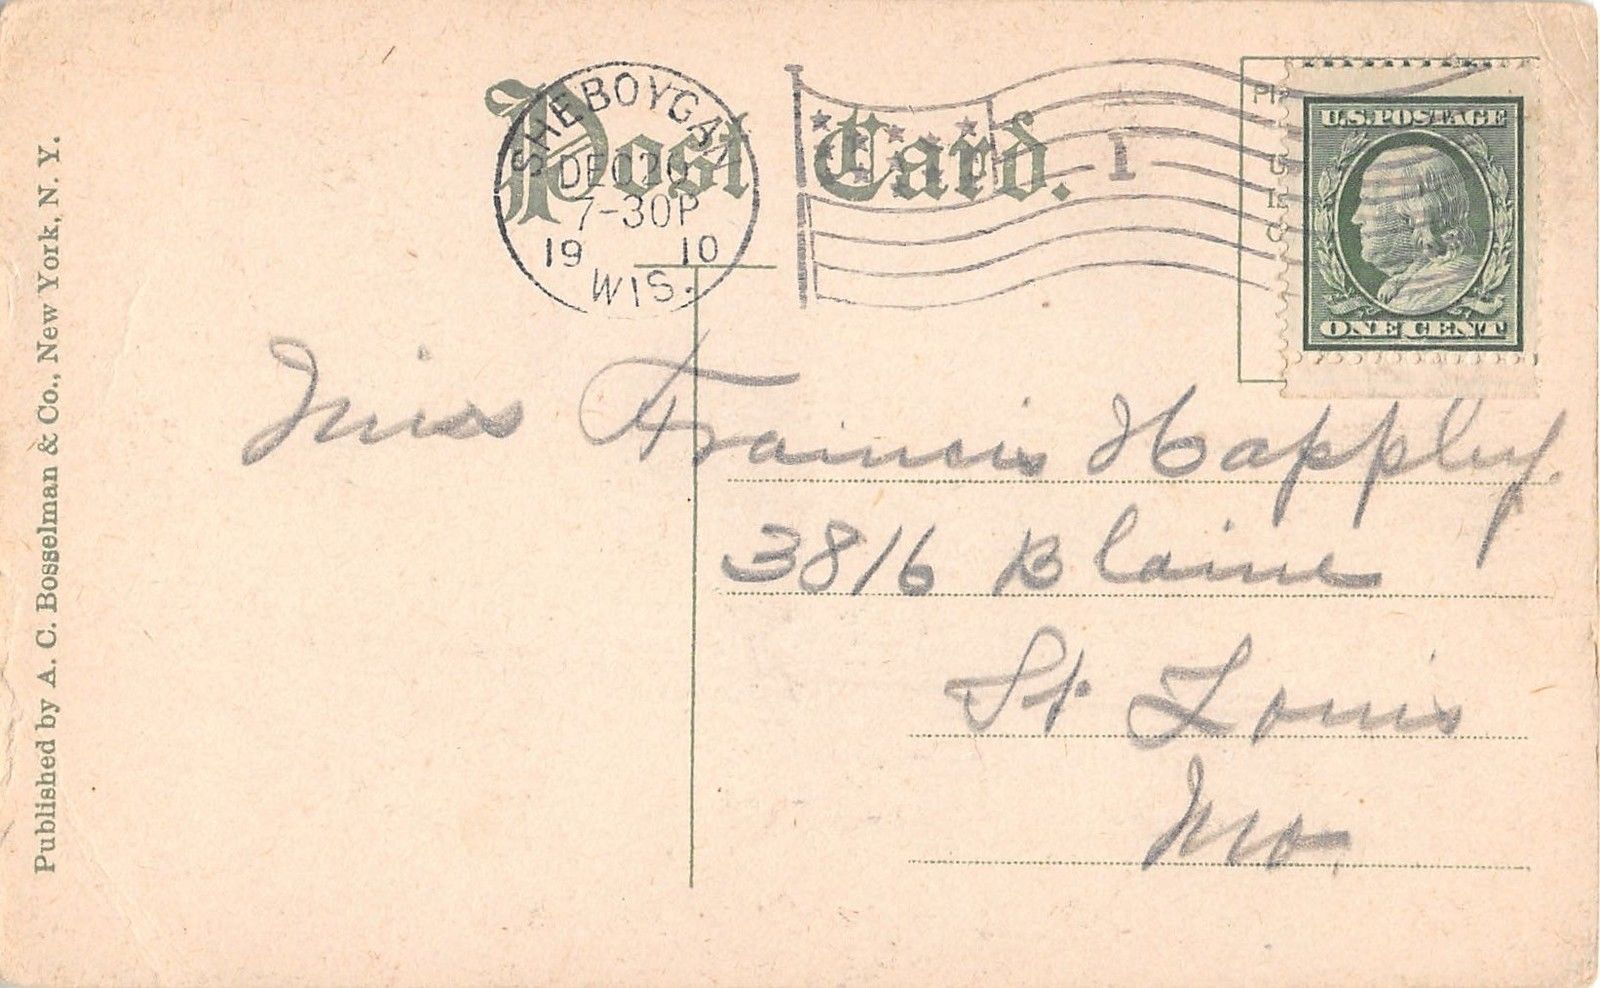 Post Card.
SHEBOYGAN
DEC 20
7-30P
19 10
WIS.
1
U.S. POSTAGE
ONE CENT
Miss Francis Happley.
3816 Blaine
St. Louis
Mo.
Published by A. C. Bosselman & Co., New York, N. Y.